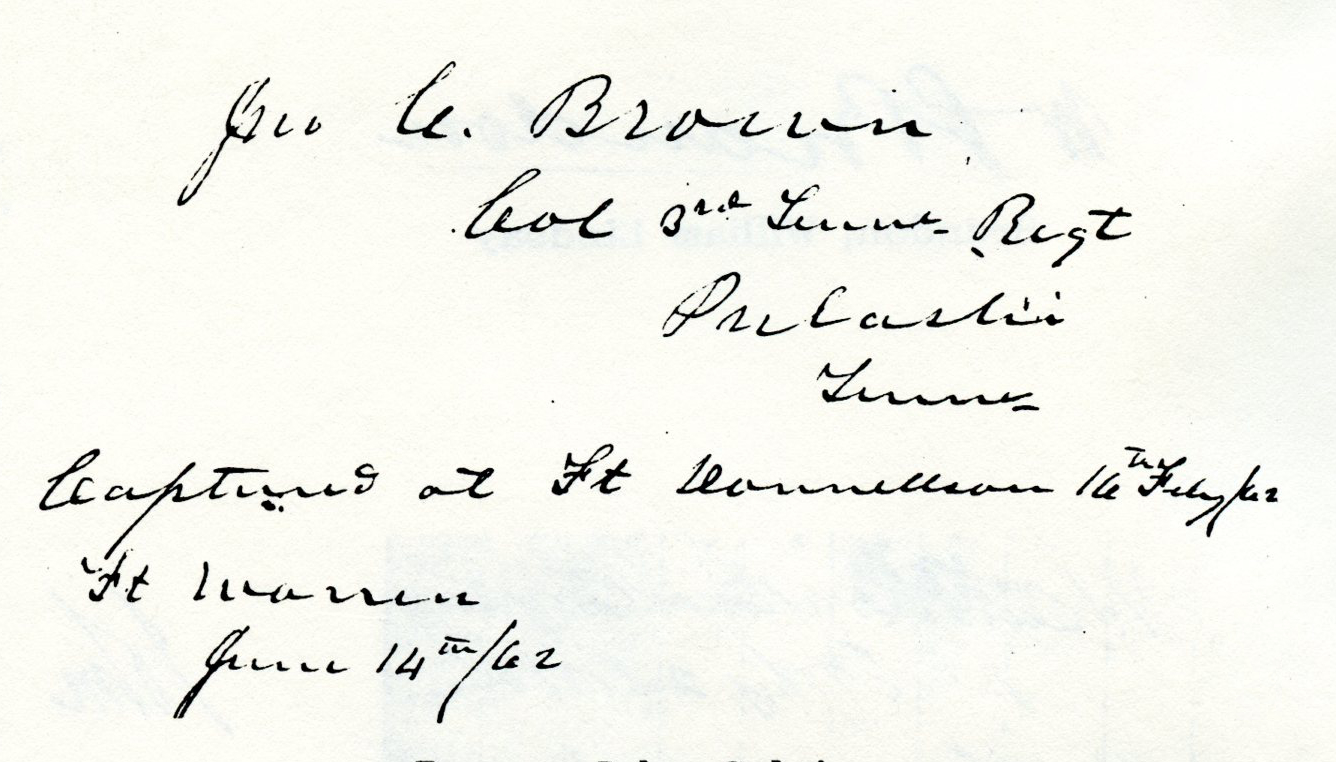 Jno C. Brown
Col 3rd Tenn. Regt
Pulaski
Tenn.
Captured at Ft Donnellson 16th Feby/62
Ft Warren
June 14th/62